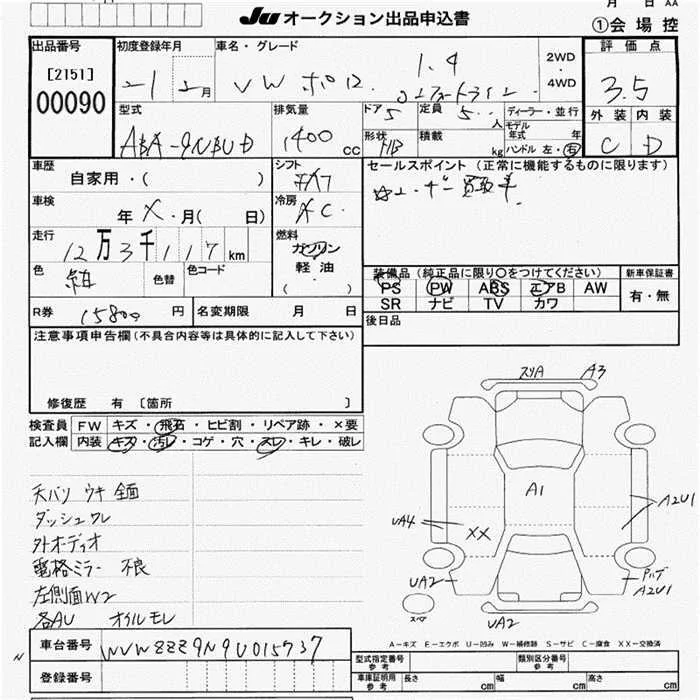 月 日 AA
JU オークション出品申込書
①会場控
出品番号
[2151]
00090
初度登録年月
21
2月
車名・グレード
VW ポロ
1.4
コンフォートライン
2WD
4WD
評価点
3.5
型式
ABA-9NBUD
排気量
1400 cc
ドア 5
定員 5 人
形状 HB
積載 kg
ディーラー・並行
モデル年式 年
ハンドル 左・右
外装 内装
C D
車歴
自家用・( )
シフト
FA7
セールスポイント (正常に機能するものに限ります)
☆ユーザー買取車
車検
年 X・月( 日)
冷房
AC
走行
12万3千117km
燃料
ガソリン
軽油
( )
色
紺
色替
色コード
装備品 (純正品に限り○をつけてください)
PS PW ABS エアB AW
SR ナビ TV カワ
新車保証書
有・無
R券 15800 円
名変期限 月 日
後日品
注意事項申告欄 (不具合内容等は具体的に記入して下さい)
修復歴 有 [箇所 ]
検査員記入欄
FW キズ・飛石・ヒビ割・リペア跡・×要
内装 キズ・汚レ・コゲ・穴・スレ・キレ・破レ
天バリ ウキ 全面
ダッシュワレ
外オーディオ
電格ミラー 不良
左側面W2
各AU オイルモレ
スリA A3
A1
A2U1
UA4
XX
UA2
A2U1
UA2
スペア
A-キズ E-エクボ U-凹み W-補修跡 S-サビ C-腐食 XX-交換済
N
車台番号 WVWZZZ9N9U015737
登録番号
型式指定番号 参考
類別区分番号 参考
車庫証明用 参考
長さ cm
幅 cm
高さ cm